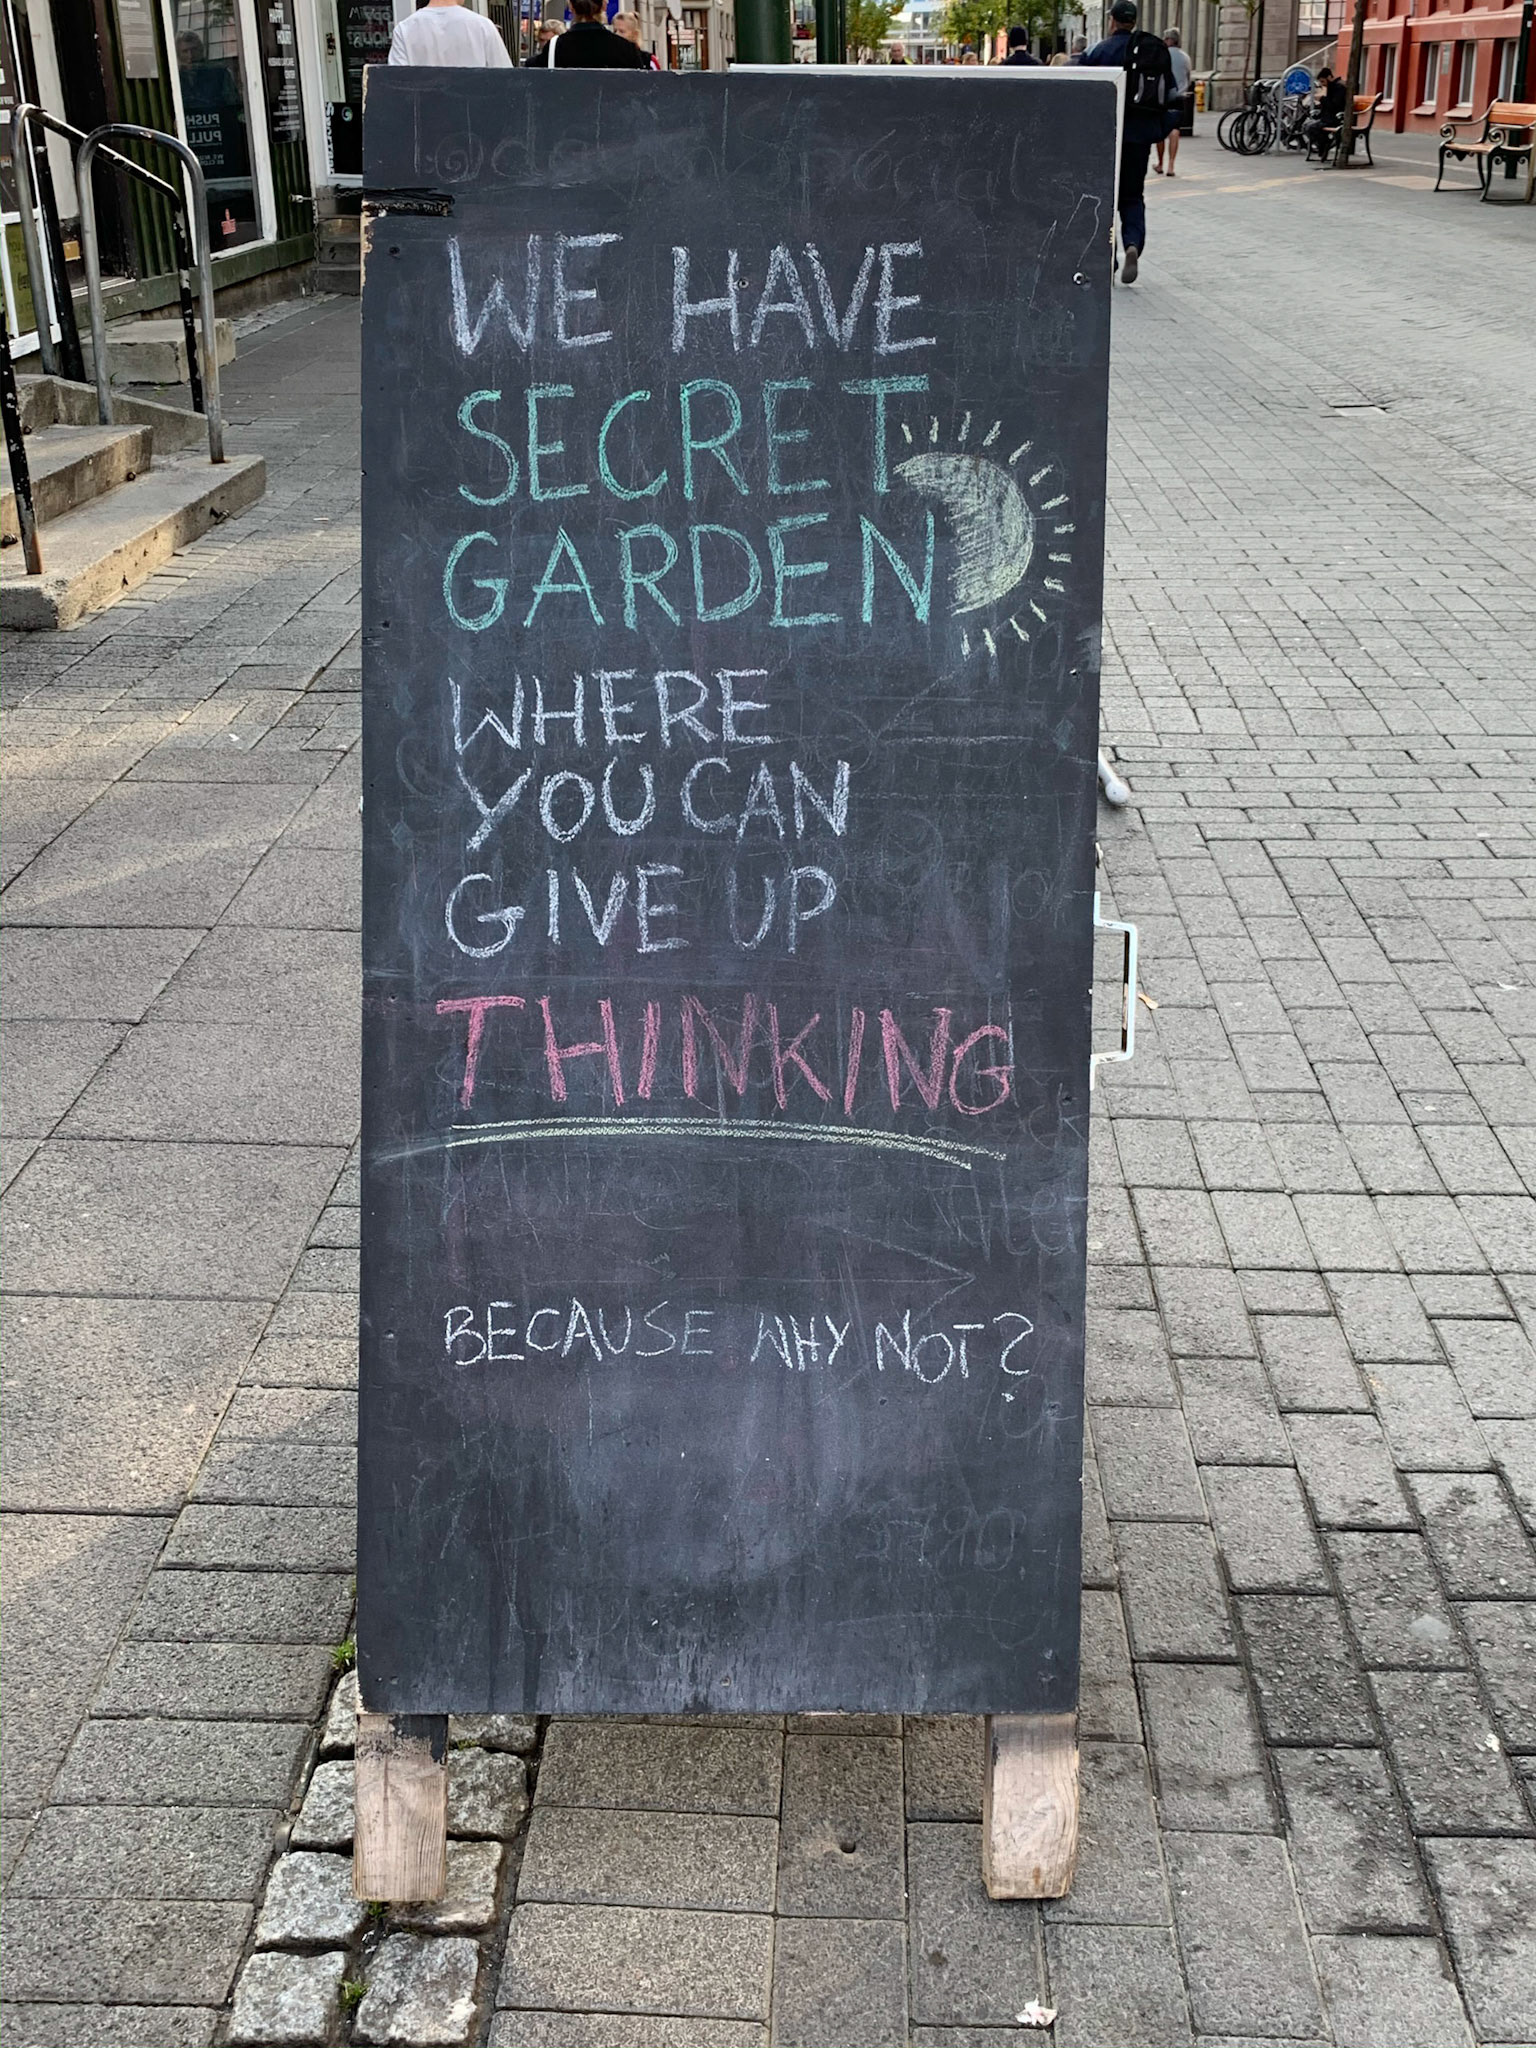 WE HAVE
SECRET
GARDEN
WHERE
YOU CAN
GIVE UP
THINKING
BECAUSE WHY NOT?
PUSH
PULL